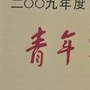 二〇〇九年度
青年